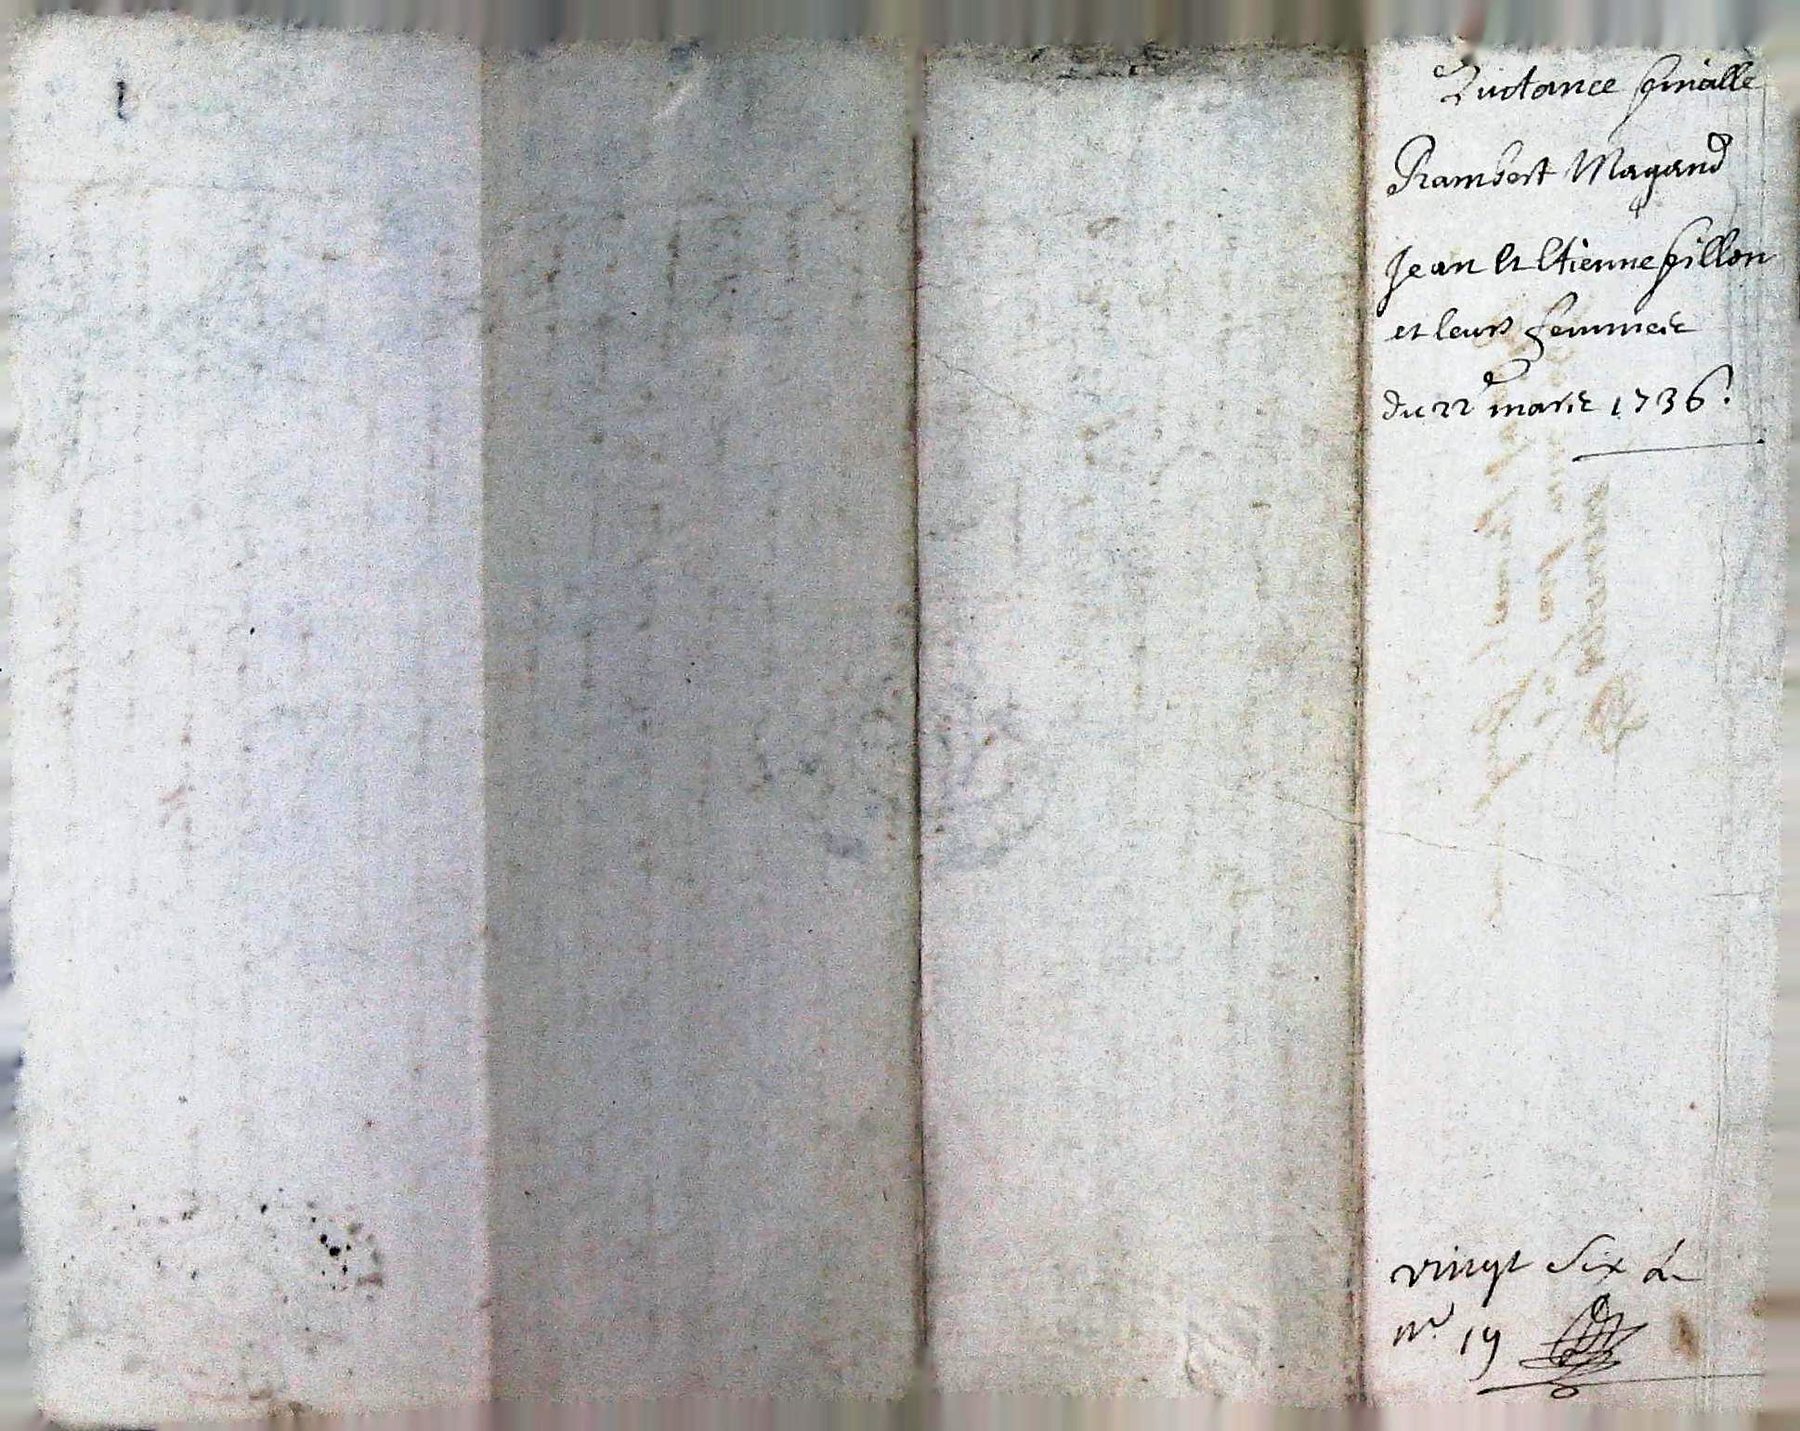 Quictance finalle
Rambert Magand
Jean Et Etienne fillon
et leurs femmes
du 22e mars 1736.
vingt Six L
no. 19